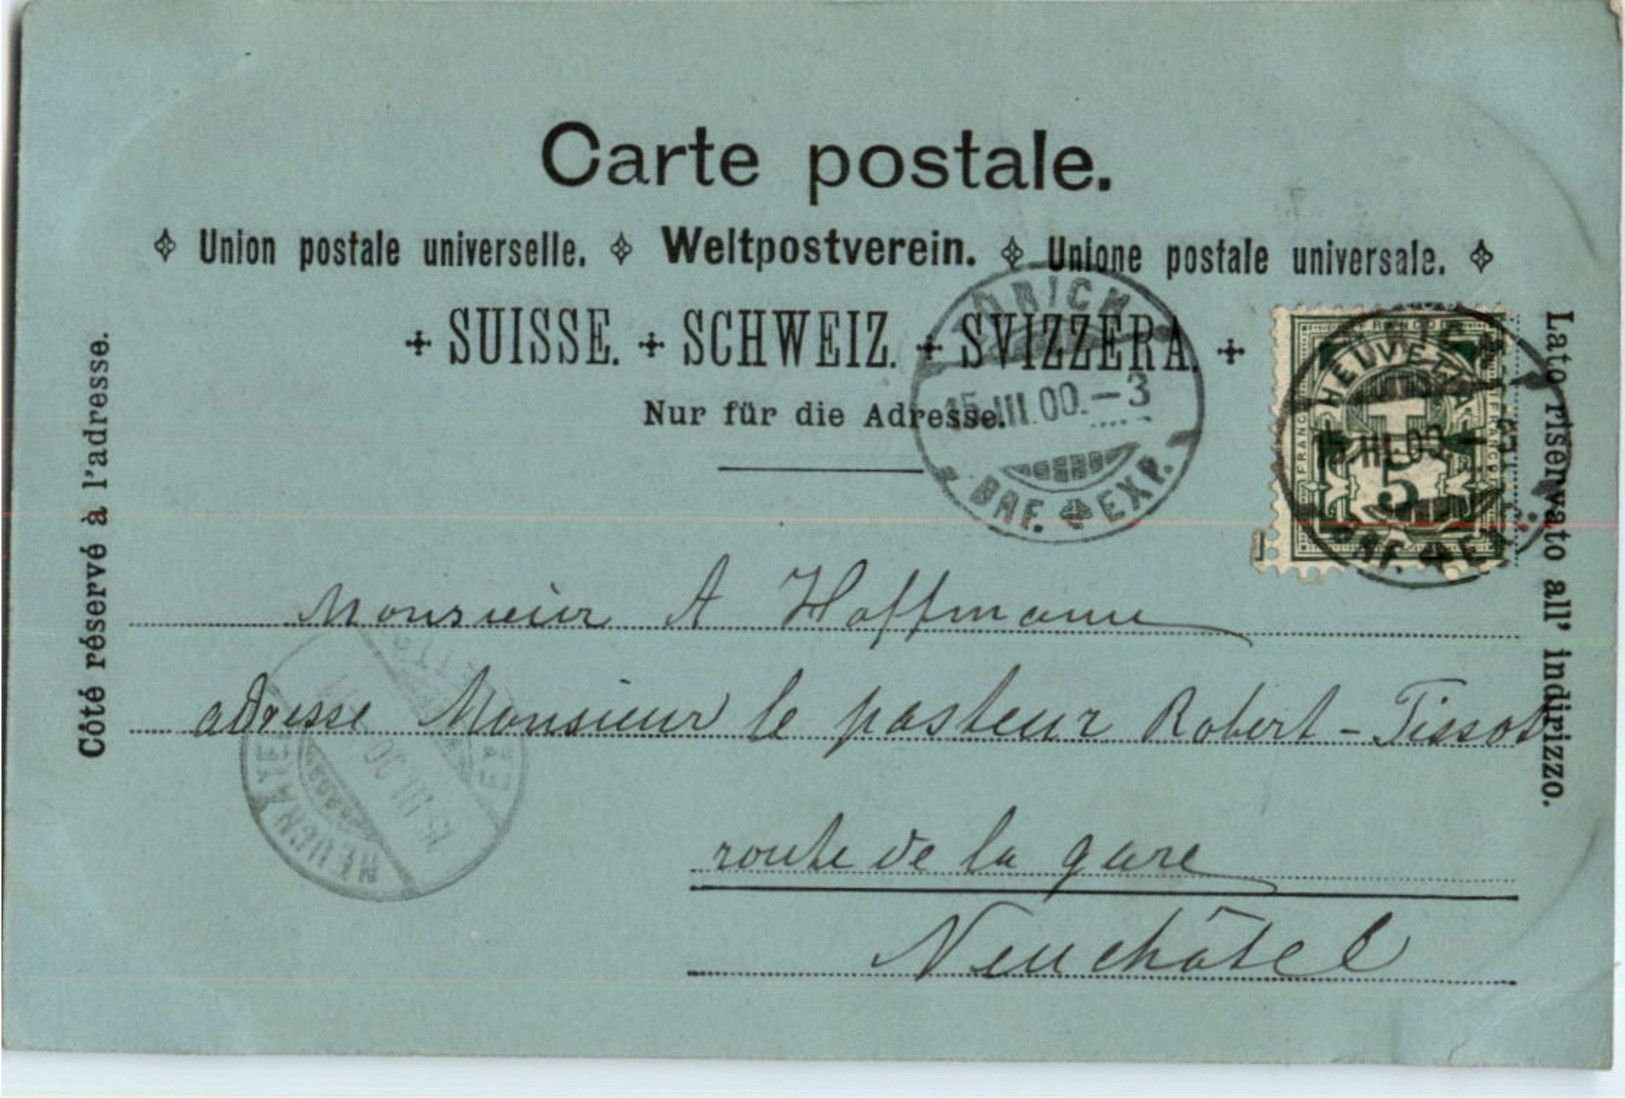 Carte postale.
Union postale universelle. Weltpostverein. Unione postale universale.
SUISSE. SCHWEIZ. SVIZZERA.
Nur für die Adresse.
Côté réservé à l'adresse.
Lato riservato all' indirizzo.
ZÜRICH
15.III.00.–3
BRF. EXP.
FRANCO
HELVETIA
5
15.III.00.
BRF. EXP.
Monsieur A Hoffmann
adresse Monsieur le pasteur Robert-Tissot
route de la gare
Neuchâtel
NEUCHÂTEL
15.III.00